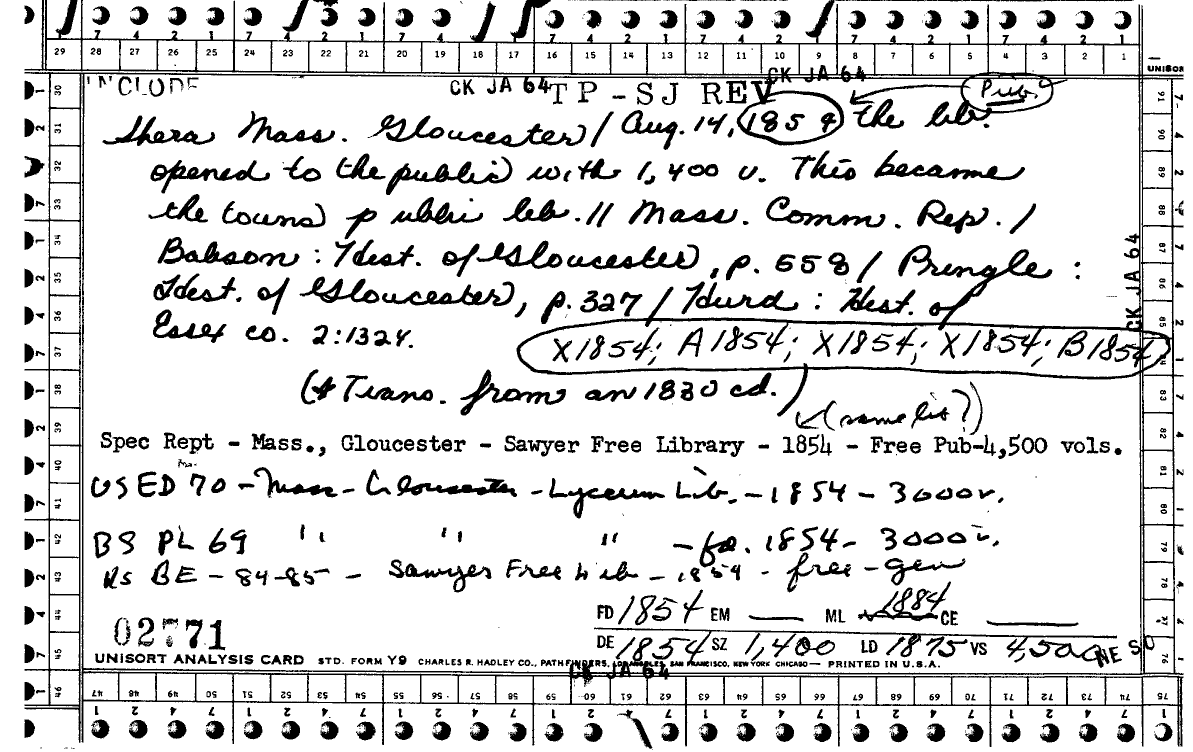 29 28 27 26 25 24 23 22 21 20 19 18 17 16 15 14 13 12 11 10 9 8 7 6 5 4 3 2 1
UNISOR
INCLUDE CK JA 64 TP-SJ REV CK JA 64 Pub.
Shera Mass. Gloucester / Aug. 14, 1854 the lib.
opened to the public with 1,400 v. This became
the towns public lib. // Mass. Comm. Rep. /
Babson: Hist. of Gloucester, p. 558 / Pringle:
Hist. of Gloucester, p. 327 / Hurd: Hist. of
Essex co. 2:1324.
X1854; A1854; X1854; X1854; B1854
CK JA 64
(# Trans. from an 1830 cd.)
(same lib?)
Spec Rept - Mass., Gloucester - Sawyer Free Library - 1854 - Free Pub-4,500 vols.
US ED 70 - Mass - Gloucester - Lyceum Lib. - 1854 - 3000v.
BS PL 69 " " " - fd. 1854 - 3000v.
Rs BE - 84-85 - Sawyer Free Lib - 1854 - free - gen
FD 1854 EM — ML 1884 CE —
02771
DE 1854 SZ 1,400 LD 1875 VS 4,500 NE SO
UNISORT ANALYSIS CARD STD. FORM Y9 CHARLES R. HADLEY CO., PATHFINDERS, LOS ANGELES, SAN FRANCISCO, NEW YORK CHICAGO — PRINTED IN U.S.A.
CK JA 64
47 48 49 50 51 52 53 54 55 56 57 58 59 60 61 62 63 64 65 66 67 68 69 70 71 72 73 74 75